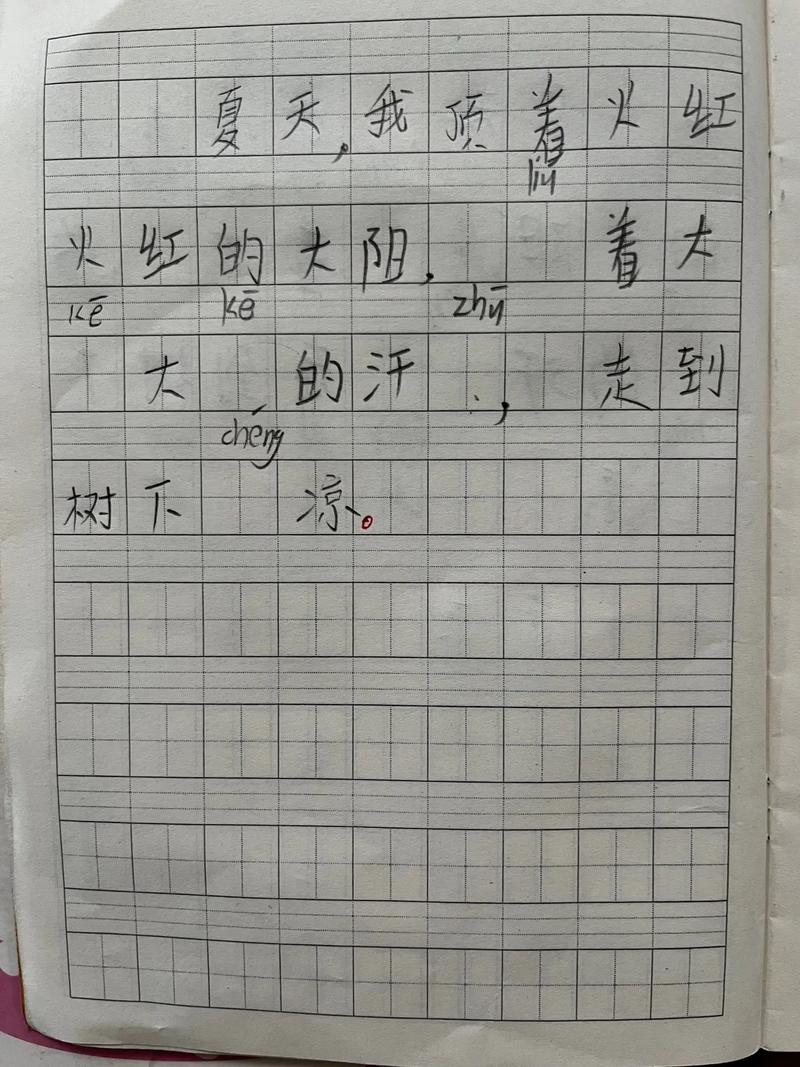 夏天，我顶着火红
liu
火红的大阻，着大
kē kē zhū
大的汗，走到
chéng
树下凉。